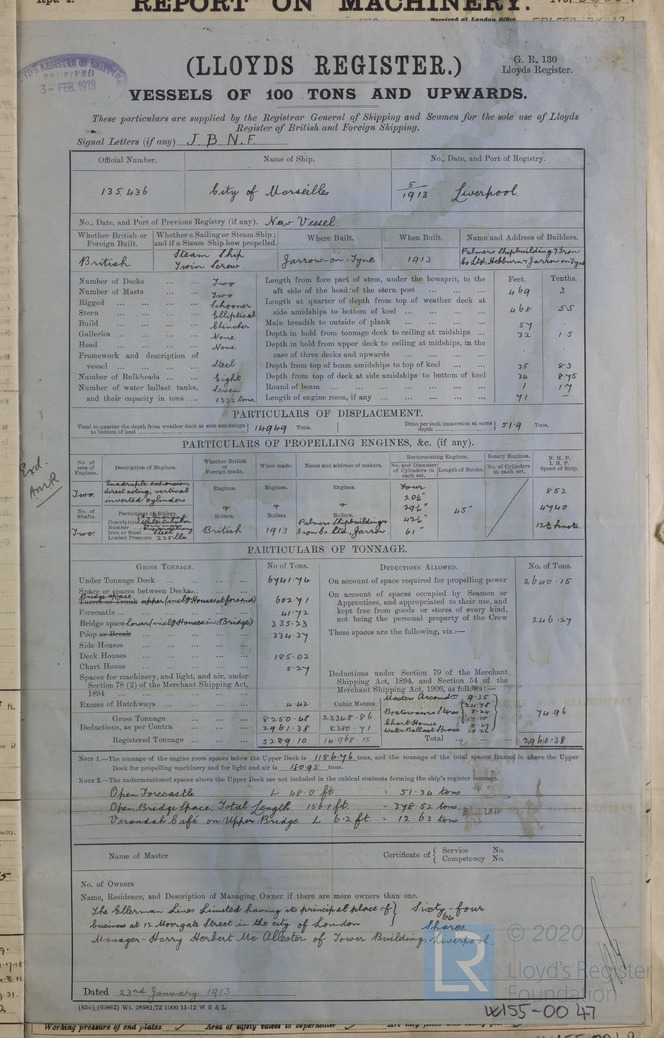 REPORT ON MACHINERY.
Received at London Office
RECEIVED
3 - FEB. 1913
(LLOYDS REGISTER.)
G. R. 130
Lloyds Register.
VESSELS OF 100 TONS AND UPWARDS.
These particulars are supplied by the Registrar General of Shipping and Seamen for the sole use of Lloyds
Register of British and Foreign Shipping.
Signal Letters (if any) J B N F
Official Number. Name of Ship. No., Date, and Port of Registry.
135,436 City of Marseille 5/1913 Liverpool
No., Date, and Port of Previous Registry (if any). New Vessel
Whether British or Foreign Built. Whether a Sailing or Steam Ship; and if a Steam Ship how propelled. Where Built. When Built. Name and Address of Builders.
British Steam Ship Twin Screw Jarrow-on-Tyne 1913 Palmers Shipbuilding & Iron Co Ltd. Hebburn & Jarrow on Tyne
Number of Decks Two
Number of Masts Two
Rigged Schooner
Stern Elliptical
Build Clincher
Galleries None
Head None
Framework and description of vessel Steel
Number of Bulkheads Eight
Number of water ballast tanks, and their capacity in tons Seven 1332 tons
Feet. Tenths.
Length from fore part of stem, under the bowsprit, to the aft side of the head of the stern post 469 3
Length at quarter of depth from top of weather deck at side amidships to bottom of keel 468 55
Main breadth to outside of plank 57
Depth in hold from tonnage deck to ceiling at midships 32 1.5
Depth in hold from upper deck to ceiling at midships, in the case of three decks and upwards
Depth from top of beam amidships to top of keel 35 83
Depth from top of deck at side amidships to bottom of keel 34 875
Round of beam 1 17
Length of engine room, if any 71
PARTICULARS OF DISPLACEMENT.
Total to quarter the depth from weather deck at side amidships to bottom of keel 14949 Tons. Ditto per inch immersion at same depth 51.9 Tons.
PARTICULARS OF PROPELLING ENGINES, &c. (if any).
No. of sets of Engines. Description of Engines. Whether British or Foreign made. When made. Name and address of makers. Reciprocating Engines. Rotary Engines. N. H. P. I. H. P. Speed of Ship.
No. and Diameter of Cylinders in each set. Length of Stroke. No. of Cylinders in each set.
Two Quadruple expansion direct acting, vertical inverted cylinders Engines. Engines. Engines.
No. of Shafts. Particulars of Boilers. Boilers. Boilers. Boilers.
Description
Number
Iron or Steel Steel
Loaded Pressure 225 lbs
Two British 1913 Palmers Shipbuilding & Iron Co. Ltd. Jarrow
Four 45"
61"
852
4740
PARTICULARS OF TONNAGE.
GROSS TONNAGE. No of Tons. DEDUCTIONS ALLOWED. No. of Tons.
Under Tonnage Deck 6741.74
Space or spaces between Decks
Bridge space upper (incl g Houses at forward) 602.71
Forecastle 41.72
Bridge space lower (incl g Houses in Bridge) 335.23
Poop or Break 334.37
Side Houses
Deck Houses 185.02
Chart House 5.27
Spaces for machinery, and light, and air, under Section 78 (2) of the Merchant Shipping Act, 1894
Excess of Hatchways 4.42
Cubic Metres
Gross Tonnage 8250.48 23348.86
Deductions, as per Contra 2961.38 8380.71
Registered Tonnage 5289.10 14968.15
On account of space required for propelling power 2640.15
On account of spaces occupied by Seamen or Apprentices, and appropriated to their use, and kept free from goods or stores of every kind, not being the personal property of the Crew 246.27
These spaces are the following, viz.:—
Deductions under Section 79 of the Merchant Shipping Act, 1894, and Section 54 of the Merchant Shipping Act, 1906, as follows:—
Masters Accomdn 9.35
Boatswains Stores
Chart House
Water Ballast Space
74.96
Total 2961.38
NOTE 1.—The tonnage of the engine room spaces below the Upper Deck is 1186.76 tons, and the tonnage of the total spaces framed in above the Upper
Deck for propelling machinery and for light and air is 180.95 tons.
NOTE 2.—The undermentioned spaces above the Upper Deck are not included in the cubical contents forming the ship's register tonnage.
Open Forecastle L 48.0 ft = 51.34 tons
Open Bridge Space, Total Length 156.1 ft = 378.52 tons
Verandah Café on Upper Bridge L 6.2 ft = 12.63 tons
Name of Master Certificate of { Service No. Competency No.
No. of Owners
Name, Residence, and Description of Managing Owner if there are more owners than one.
The Ellerman Lines Limited having its principal place of } Sixty-four
business at 12 Moorgate Street in the city of London 64 Shares
Manager- Harry Herbert Mc Allester of Tower Building, Liverpool.
Dated 23rd January 1913
© 2020
Lloyd's Register
Foundation
LR
W155-0047
Working pressure of end plates Area of safety valves to superheater